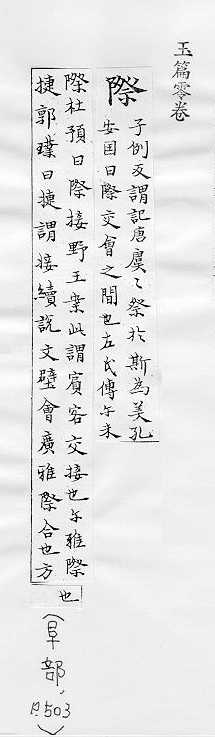 玉篇零卷
際 子例反謂記唐虞〻祭於斯為美孔
安国曰際交會之間也左氏傳尓未
際杜預曰際接野王案此謂賓客交接也尓雅際
捷郭璞曰捷謂接續說文壁會廣雅際合也方
也
(阜部, p.503)